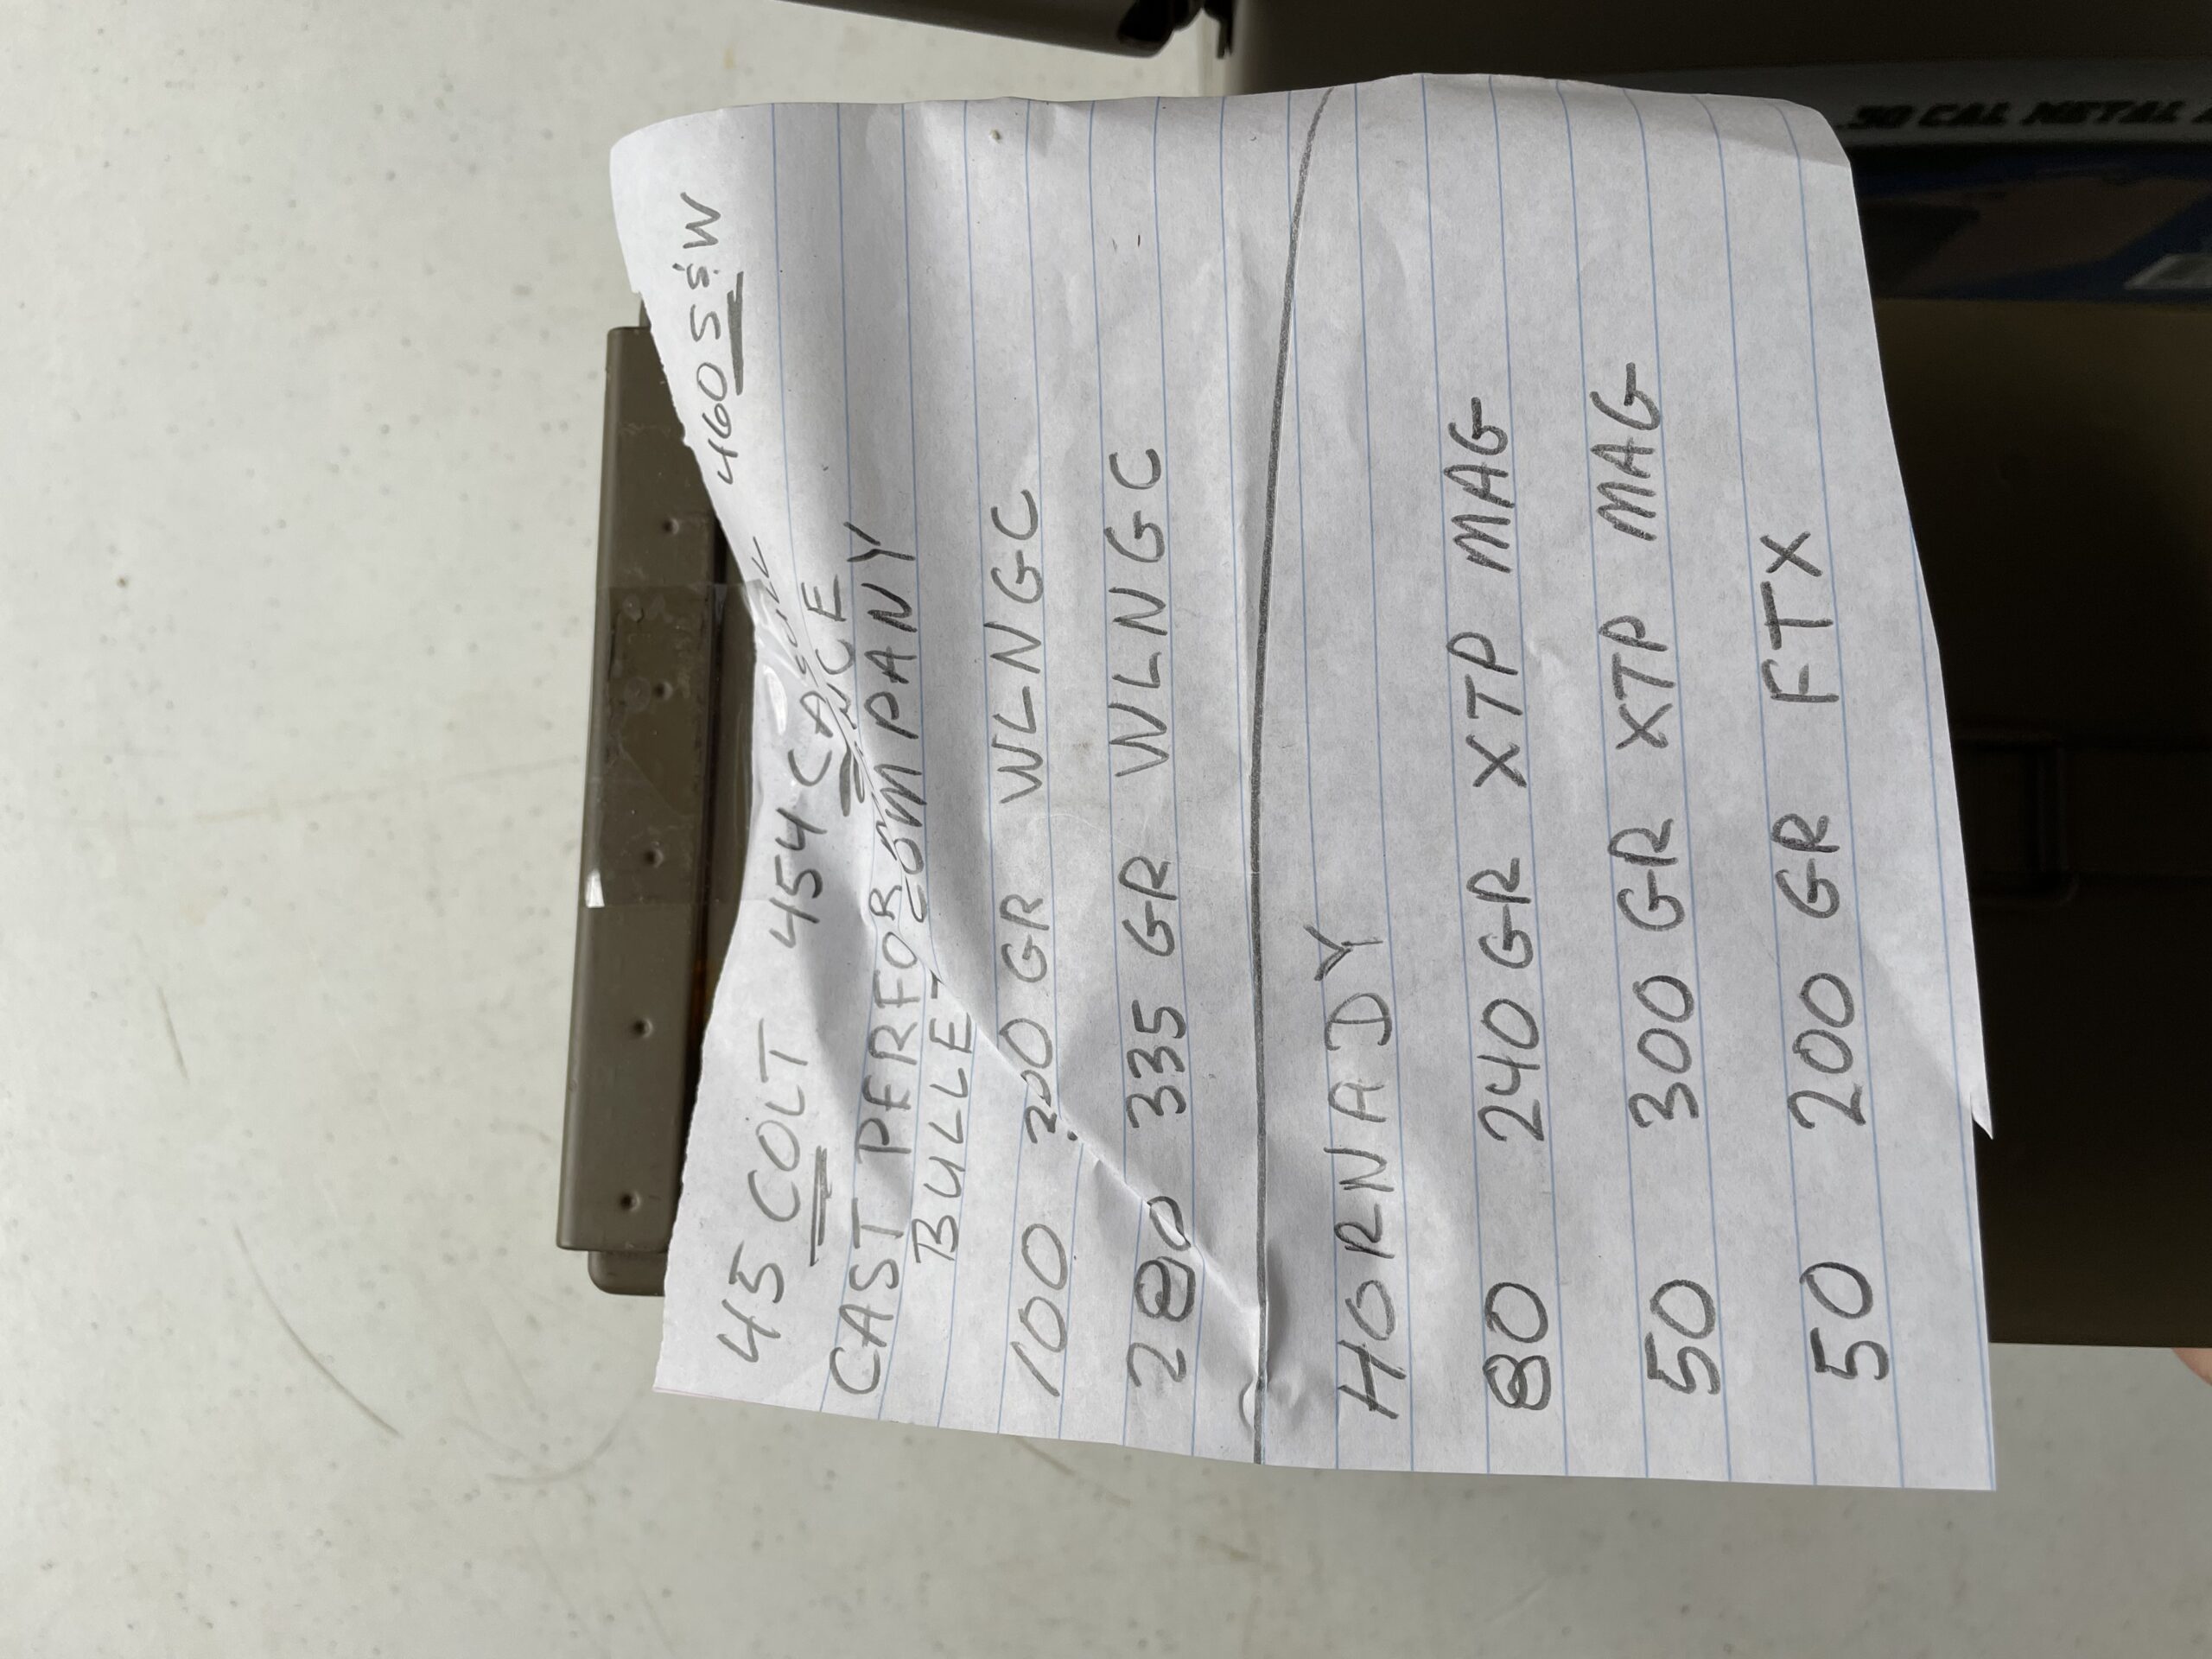 45 COLT 454 CASULL 460 S&W
CAST PERFORMANCE
BULLET COMPANY
100 GR WLNGC
280 335 GR WLNGC
HORNADY
80 240 GR XTP MAG
50 300 GR XTP MAG
50 200 GR FTX
.30 CAL METAL